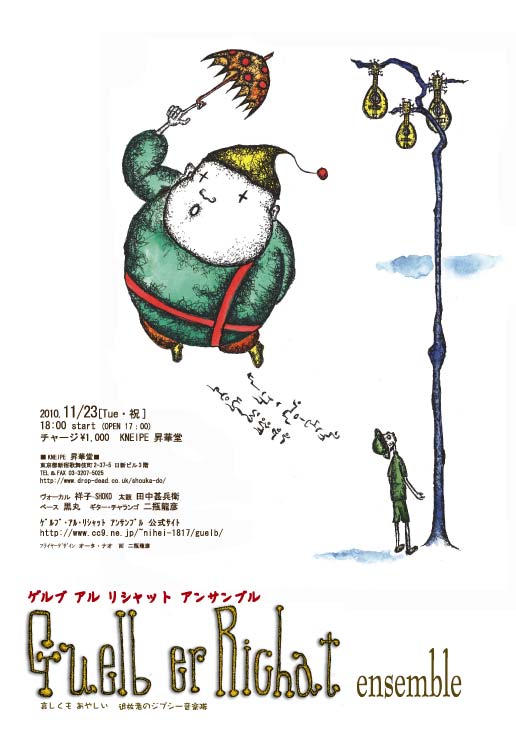 2010. 11/23[Tue・祝]
18:00 start (OPEN 17:00)
チャージ¥1,000 KNEIPE 昇華堂
■ KNEIPE 昇華堂■
東京都新宿歌舞伎町2-37-5 日新ビル3階
TEL & FAX 03-3207-5025
http://www.drop-dead.co.uk/shouka-do/
ヴォーカル 祥子-SHOKO 太鼓 田中甚兵衛
ベース 黒丸 ギター・チャランゴ 二瓶龍彦
ゲルブ・アル・リシャット アンサンブル 公式サイト
http://www.cc9.ne.jp/~nihei-1817/guelb/
フライヤーデザイン オータ・ナオ 画 二瓶龍彦
ゲルブ アル リシャット アンサンブル
Guelb er Richat ensemble
哀しくも あやしい 追放者のジプシー音楽隊